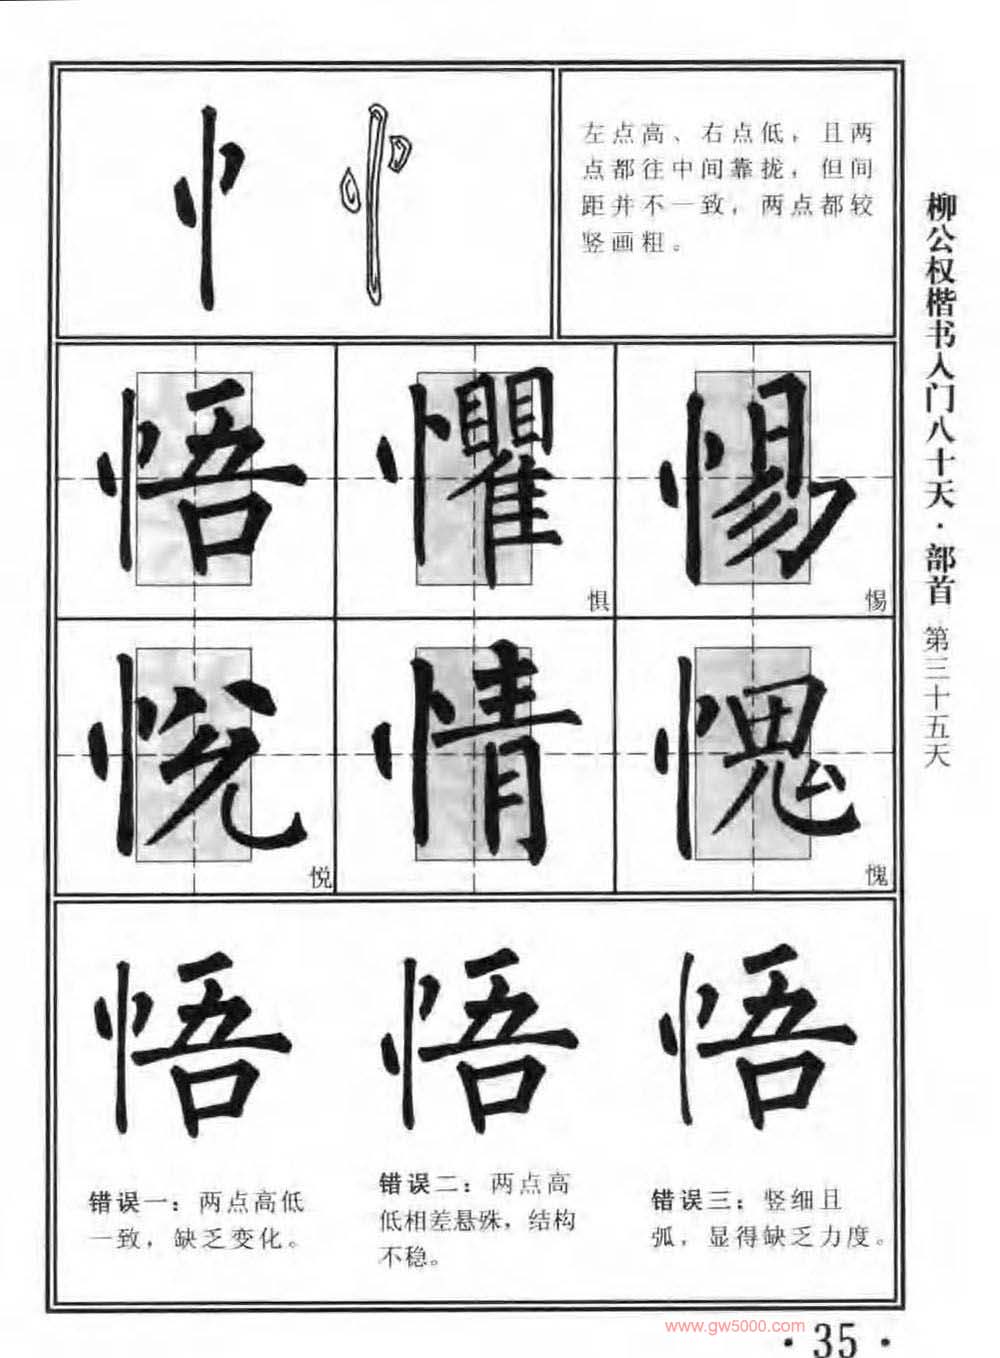 左点高、右点低，且两
点都往中间靠拢，但间
距并不一致，两点都较
竖画粗。
悟
懼
惧
惕
惕
悦
悦
情
愧
愧
悟
悟
悟
错误一：两点高低
一致，缺乏变化。
错误二：两点高
低相差悬殊，结构
不稳。
错误三：竖细且
弧，显得缺乏力度。
柳公权楷书入门八十天·部首 第三十五天
www.gw5000.com
·35·